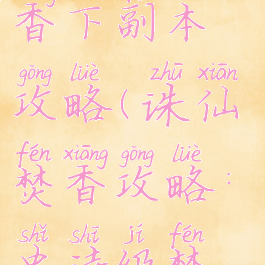 香下副本
gōng lüè zhū xiān
攻略(诛仙
fén xiāng gōng lüè
焚香攻略:
shǐ shī jí fén